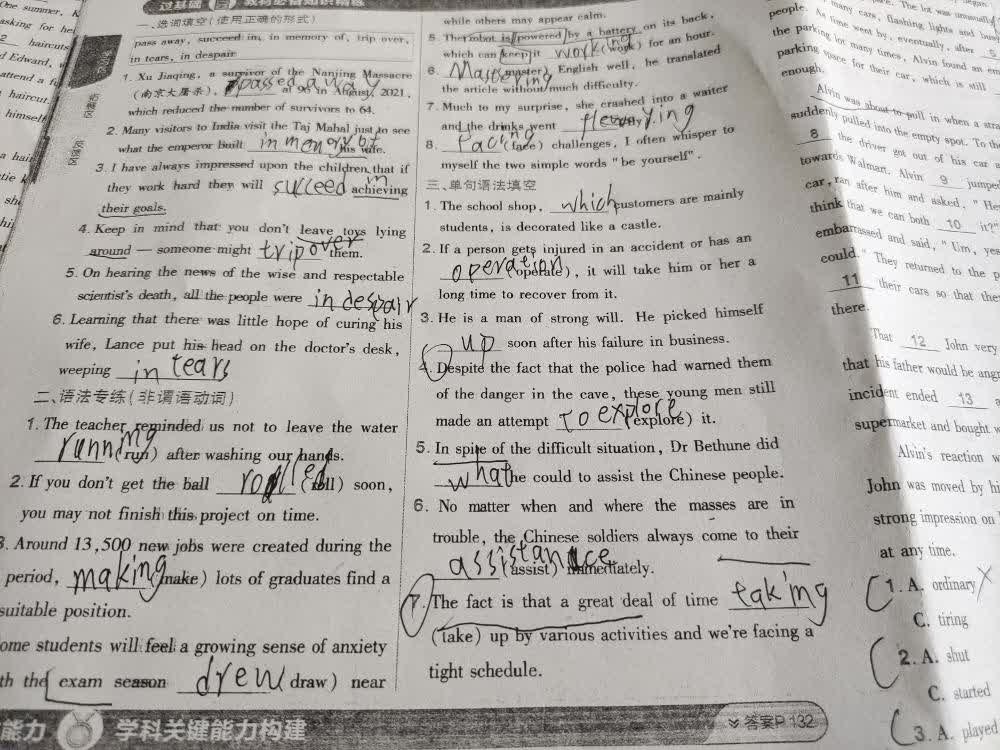 One summer, K
asking for he
haircuts
d Edward, w
attend a fu
haircut.
himself
a hair
过基础 教材必备知识精练
一、选词填空(使用正确的形式)
pass away, succeed in, in memory of, trip over,
in tears, in despair
1. Xu Jiaqing, a survivor of the Nanjing Massacre
(南京大屠杀), passed away at 96 in August, 2021,
which reduced the number of survivors to 64.
2. Many visitors to India visit the Taj Mahal just to see
what the emperor built in memory of his wife.
3. I have always impressed upon the children that if
they work hard they will succeed in achieving
their goals.
4. Keep in mind that you don't leave toys lying
around — someone might trip over them.
5. On hearing the news of the wise and respectable
scientist's death, all the people were in despair
6. Learning that there was little hope of curing his
wife, Lance put his head on the doctor's desk,
weeping in tears
二、语法专练(非谓语动词)
1. The teacher reminded us not to leave the water
running (run) after washing our hands.
2. If you don't get the ball rolled (roll) soon,
you may not finish this project on time.
3. Around 13,500 new jobs were created during the
period, making (make) lots of graduates find a
suitable position.
ome students will feel a growing sense of anxiety
th the exam season drew (draw) near
while others may appear calm.
5. The robot is powered by a battery on its back,
which can keep it working (work) for an hour.
6. Mastering (master) English well, he translated
the article without much difficulty.
7. Much to my surprise, she crashed into a waiter
and the drinks went flying
8. Facing (face) challenges, I often whisper to
myself the two simple words "be yourself".
三、单句语法填空
1. The school shop, which customers are mainly
students, is decorated like a castle.
2. If a person gets injured in an accident or has an
operation (operate), it will take him or her a
long time to recover from it.
3. He is a man of strong will. He picked himself
up soon after his failure in business.
4. Despite the fact that the police had warned them
of the danger in the cave, these young men still
made an attempt to explore (explore) it.
5. In spite of the difficult situation, Dr Bethune did
what he could to assist the Chinese people.
6. No matter when and where the masses are in
trouble, the Chinese soldiers always come to their
assistance (assist) immediately.
7. The fact is that a great deal of time taking
(take) up by various activities and we're facing a
tight schedule.
many cars, flashing lights and
people. As time went by, eventually, after
the parking lot many times, Alvin found an em
parking space for their car, which is still
enough.
Alvin was about to pull in when a stra
suddenly pulled into the empty spot. To the
8 the driver got out of his car a
towards Walmart. Alvin 9 jumpe
car, ran after him and asked, "He
think that we can both 10 it?"
embarrassed and said, "Um, yes
could." They returned to the p
11 their cars so that the
there.
That 12 John very
that his father would be angr
incident ended 13 a
supermarket and bought w
Alvin's reaction w
John was moved by hi
strong impression on
at any time.
1. A. ordinary
C. tiring
2. A. shut
C. started
3. A. played
能力 学科关键能力构建
答案P 132